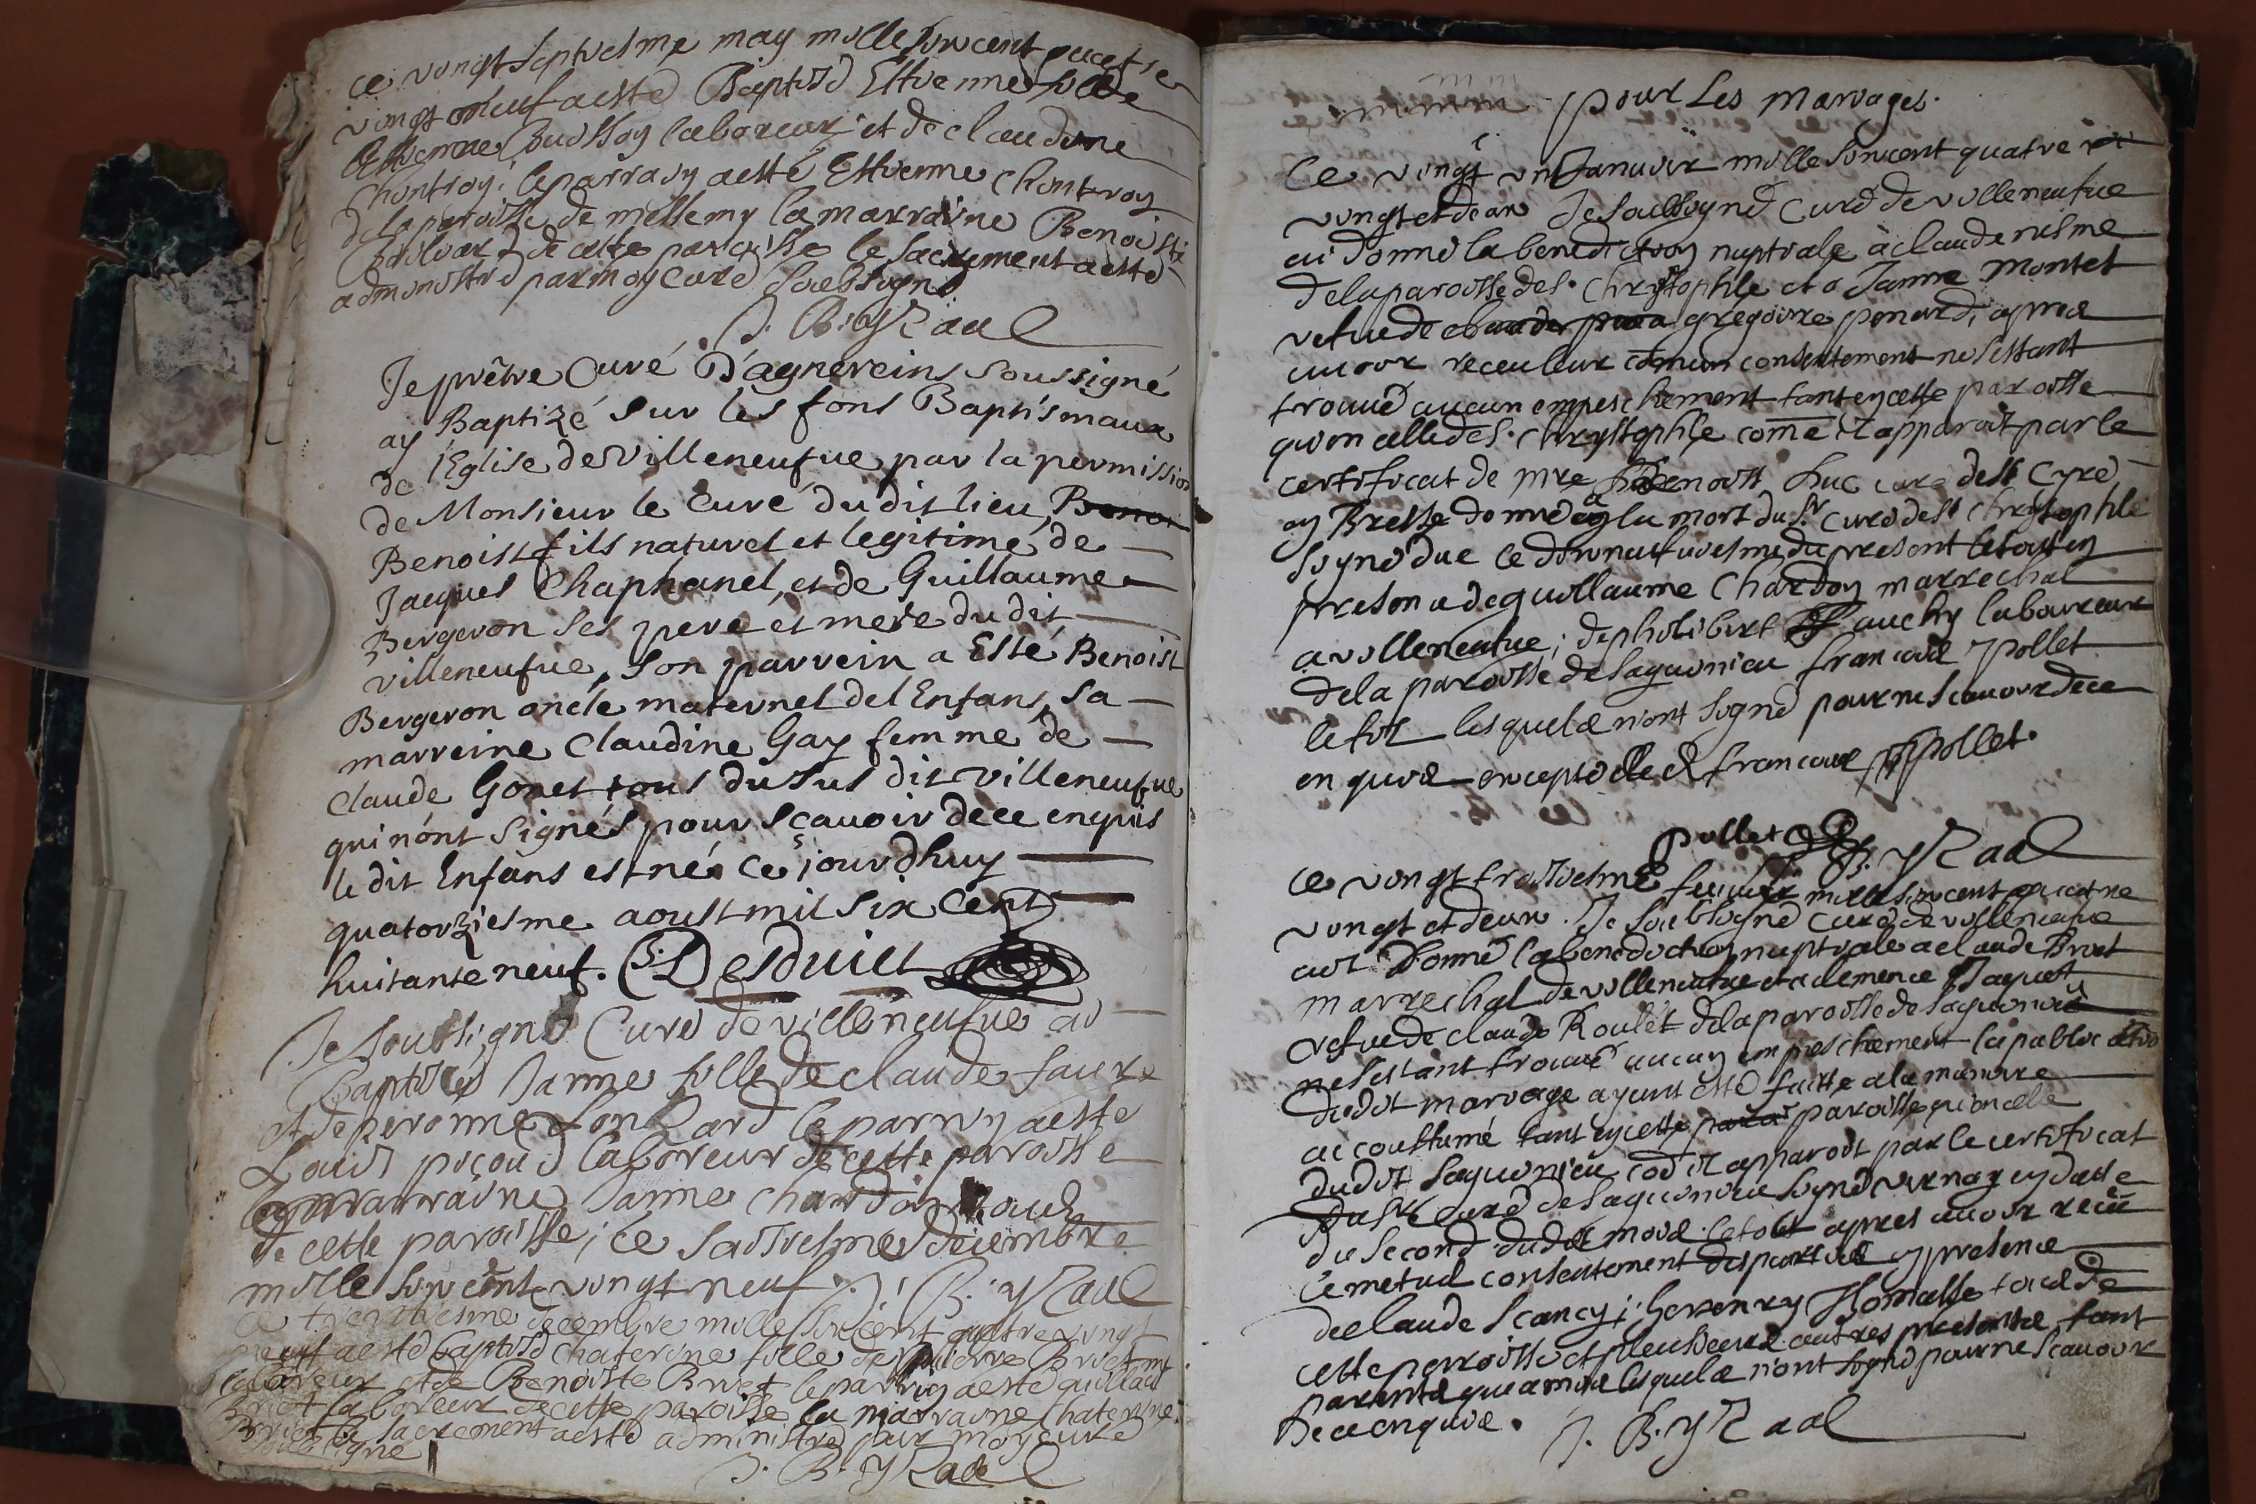 ce vingt septiesme may mille six cent quatre
vingt neuf a esté Baptisé Estienne fils de
Estienne Buisson laboreur et de claudine
Chontroy, le parrain a esté Estienne Chontroy
de la paroisse de millemy la marraine Benoiste
de cette paroisse le sacrement a esté
administré par moy curé soubsigné
J. B. yZaal
Je prêtre Curé D'agnereins soussigné
ay Baptizé sur les fons Baptismaux
de l'Eglise de villeneufue par la permission
de Monsieur le Curé du dit lieu, Benoi
Benoist fils naturel et legitime de
Jacques Chaphanel, et de Guillaume
Bergeron ses pere et mere du dit
villeneufue, son parrein a Esté Benoist
Bergeron oncle maternel del Enfans, sa
marreine Claudine Gay femme de
Claude Gonet tous du sus dit villeneufue
qui n'ont signés pour sçauoir de ce enquis
le dit Enfans est né ce jourdhuy
quatorziesme aoust mil six Cent
huitante neuf. Desduict
Je soubsigné Curé de villeneufue ai
Baptisés Janne fille de claude faure
et de peronne Lonzard le parrin a esté
Louis picoud laboreur de cette paroisse
la marraine Janne chardon
de cette paroisse, ce saisiesme decembre
mille six cent vingt neuf J. B. yZaal
ce trentiesme decembre mille six cent quatre vingt
neuf a esté baptisé Chaterine fille de pierre Briet
laboreur et de Benoiste Briet le parrin a esté guillaume
Briet laboreur de cette paroisse la marraine Chaterine
Briet le sacrement a esté administré par moy curé
soubsigné
J. B. yZaal
pour Les mariages.
Ce vingt un Januier mille six cent quatre
vingt et deux Je soubsigné Curé de villeneufue
ai donné la benediction nuptiale à claude nesme
de la paroisse de s. Chrystophle et a Janne montet
vefue de gregoire penard, apres
auoir receu leur comun consentement ne s'estant
trouué aucun empeschement tant en cette paroisse
qu'en celle de s. chrystophle come il apparoit par le
certificat de mre Benoist Luc curé de st Cyre
en Bresse donné a la mort du sr curé de st chrystophle
signé duc ce dixneufuiesme du present le tout en
presence de guillaume Chardon marrechal
a villeneufue, de philibert fauchy laboureur
de la paroisse de saguonieu francois pollet
le fils lesquels n'ont signé pour ne scauoir de ce
enquis excepté led francois pollet.
pollet J. B. yZaal
ce vingt troisiesme feurier mille six cent quatre
vingt et deux. Je soubsigné curé de villeneufue
ais Donné la benediction nuptiale a claude Briet
marrechal de villeneufue et a clemence Jaquet
vefue de claude Roulet de la paroisse de saguonieu
ne s'estant trouué aucun empeschement la publication
dudit mariage ayant esté faitte a la maniere
accoustumé tant en cette paroi paroisse qu'en celle
dudit saguonieu coe il apparoit par le certificat
du sr curé de saguonieu signé vernay en datte
du second dudit mois le tout apres auoir receu
le mutuel consentement des parties en presence
de claude Scancy, heronry thomasse tous de
cette perroisse et pleusieurs autres presents tant
parents que amis lesquels n'ont signé pour ne scauoir
De ce enquis. J. B. yZaal